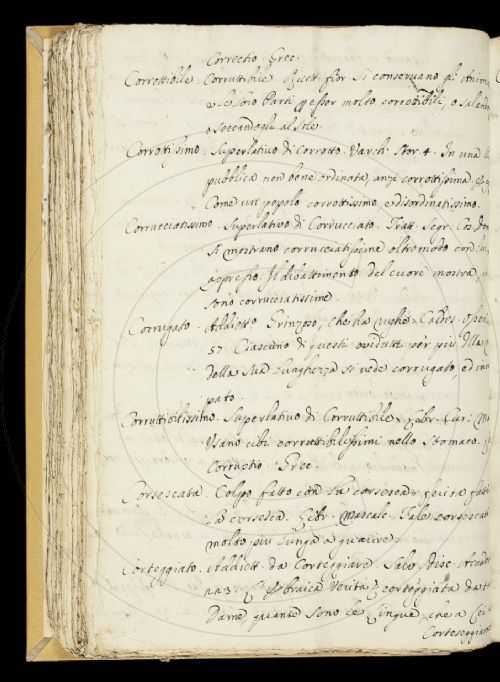 Correctio. Grec.
Corrottibile. Corruttibile. Ricett. fior. Si conservano gl'Anim
e le loro Parti p esser molto corrottibili, o salan
o seccandogli al Sole.
Corrotissimo. Superlativo di Corrotto. Varch. Stor 4. In una
pubblica non bene ordinata, anzi corrottissima
Come un popolo corrottissimo, e disordinatissimo.
Corrucciatissimo. Superlativo di Corrucciato. Tratt. Segr. Cos. Don
Si mostrano corrucciatissime oltremodo con
appresso. Il dibattimento del cuore mostra
sono corrucciatissime.
Corrugato. Addiett. Grinzoso, che ha rughe.
57. Ciascuno di questi ovidutti per più della
della sua lunghezza si vede corrugato, ed in
pato.
Corruttibilissimo. Superlativo di Corruttibile. Libr. Cur. M
Usano cibi corruttibilissimi nello Stomaco.
Corruptio. Grec.
Corsescata. Colpo fatto con la corsesca, ferita fatta
la corsesca. Libr. Mascalc. Tale corsescat
molto più lunga a guarire.
Corteggiato. Addiett. da Corteggiare. Salv. Disc. Accad
Ebraica Verità corteggiata da t
Dame quante sono le Lingue, che a
Corteseggiam